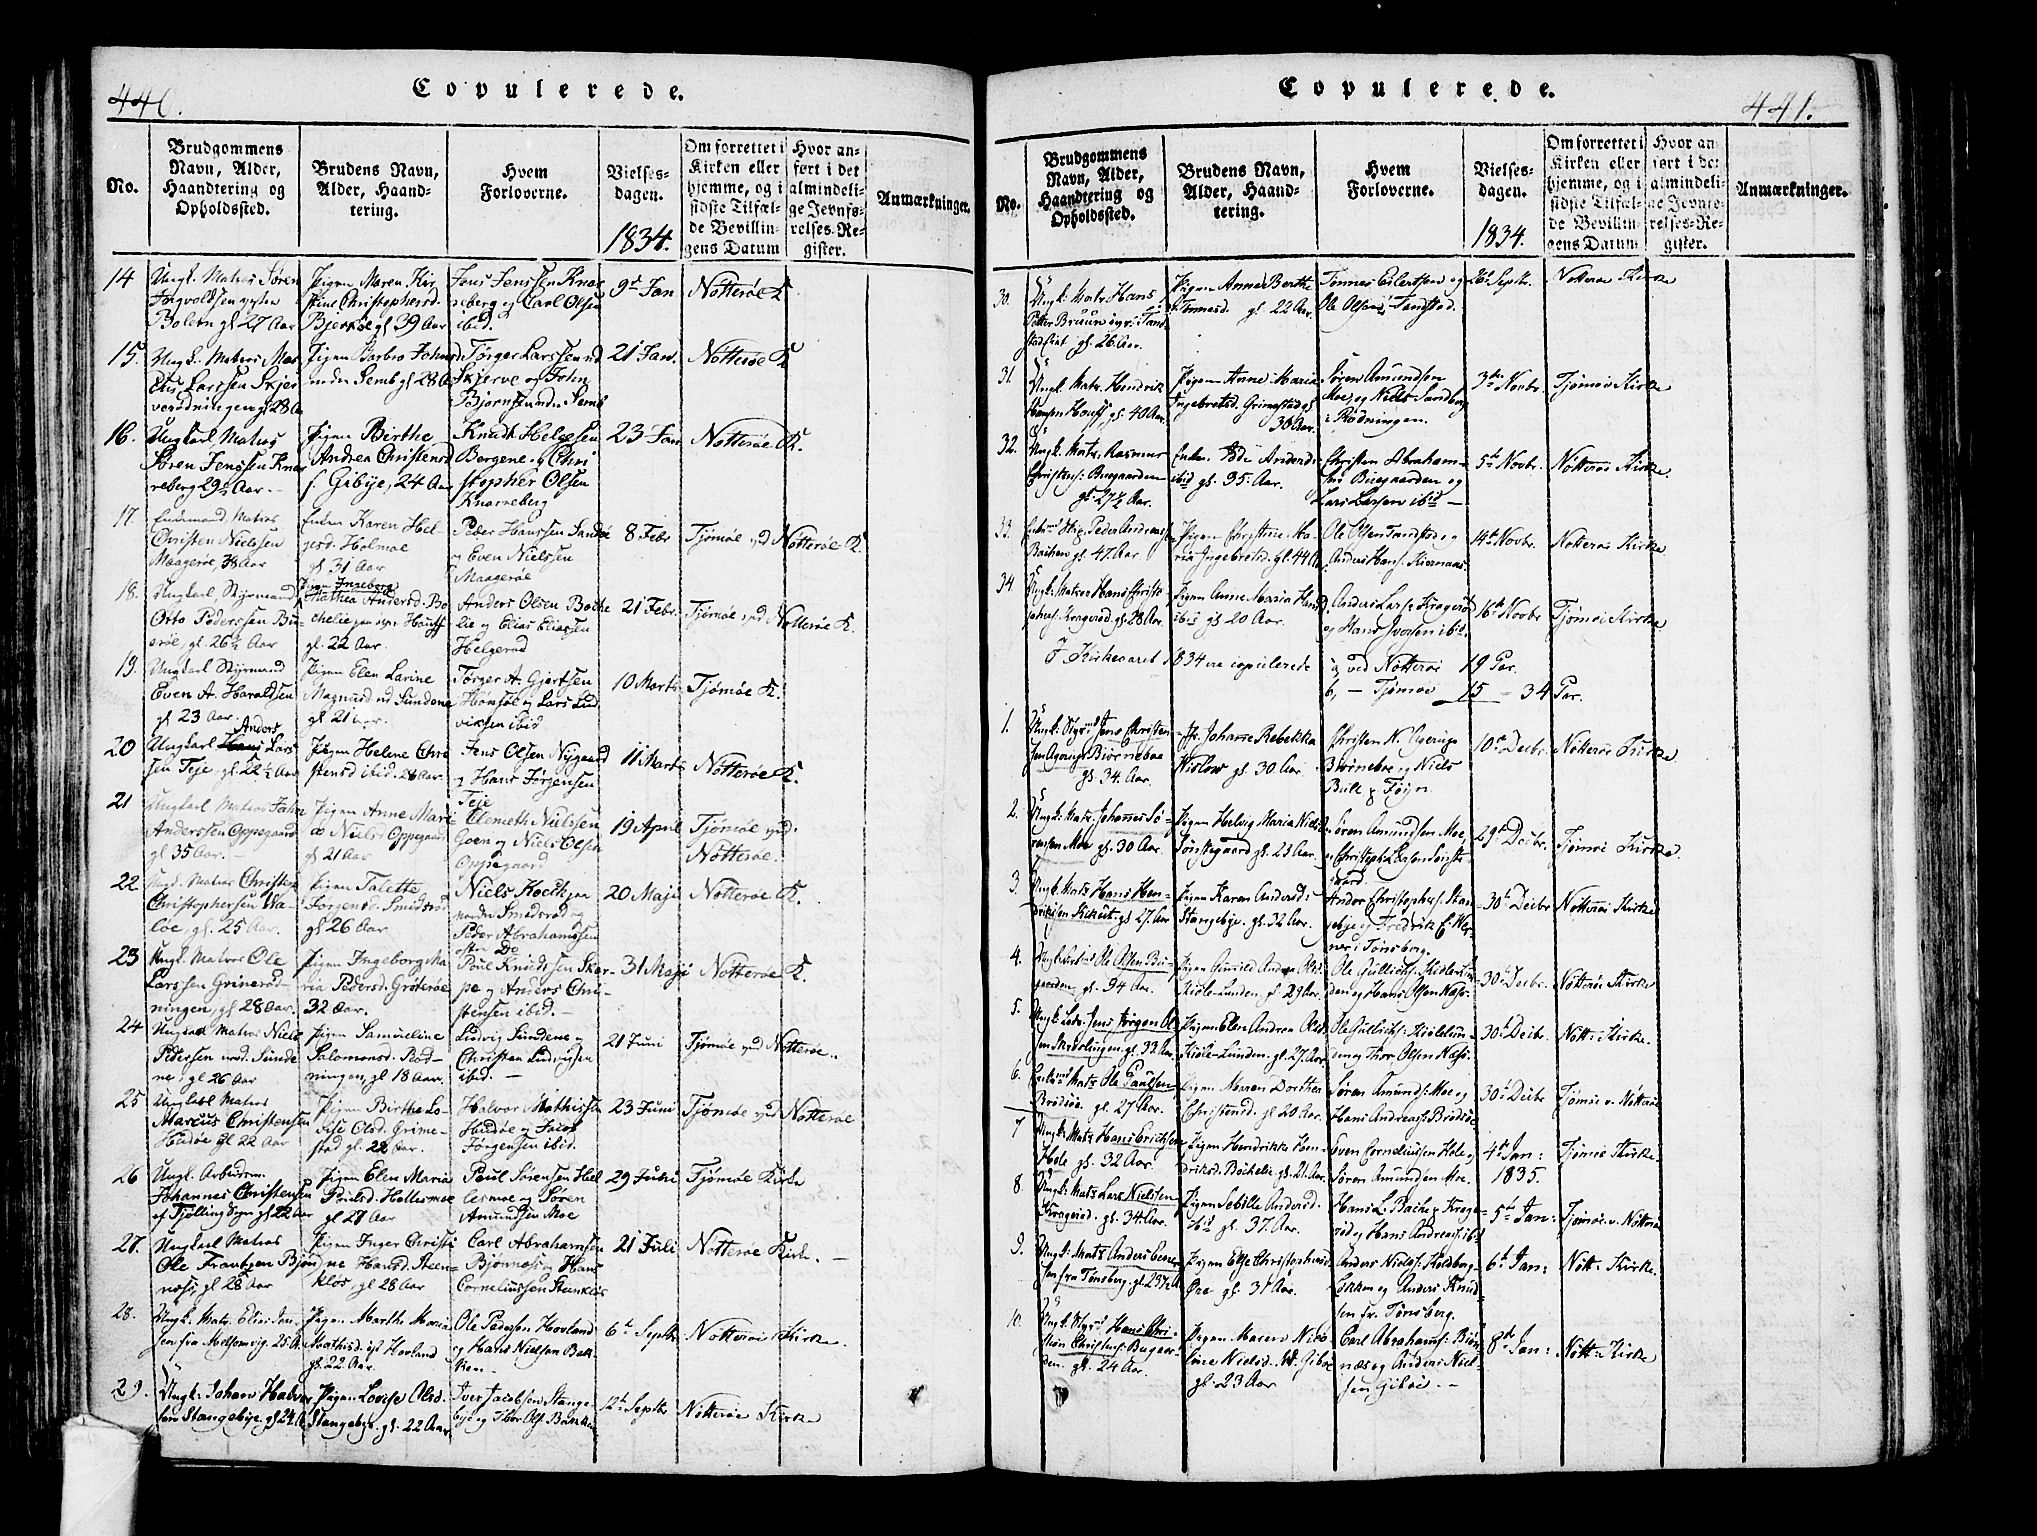 440.
Copulerede.
No.
Brudgommens Navn, Alder, Haandtering og Opholdssted.
Brudens Navn, Alder, Haandtering.
Hvem Forloverne.
Vielsesdagen.
1834.
Om forrettet i Kirken eller hjemme, og i sidste Tilfælde Bevillingens Datum
Hvor anført i det almindelige Jevnførelses-Register.
Anmærkninger.
14
Ungk. Matros Søren
Ingvoldsen
Bolærn gl 27 Aar
Pigen Maren Kir
stine Christophersd.
Bjerkøe gl 39 Aar
Jens Jenssen Knar
reberg og Carl Olsen
ibid.
9de Jan
Nötteröe K
15.
Ungk. Matros Mar
Larssen Skjer
verødningen gl 28 A
Pigen Barbro Johnsd
nedre Semb gl 28 A
Törger Larssen nd
Skjerve og John
Bjørnss nedre Semb
21 Jan.
Nötteröe K
16.
Ungkarl Matros
Sören Jenssen Knar
reberg 29 Aar.
Pigen Birthe
Andrea Christensd
f. Gibøe, 24 Aar
Knudt Helgesen
Bergene og Chri
stopher Olsen
Knarreberg
23 Jan
Nötteröe K.
17
Enkemand Matros
Christen Nielssen
Maagerøe, 38 Aar
Enken Karen Hel-
gesd. Holmøe
gl 31 Aar
Peder Hanssen Sandøe
og Even Nielssen
Maagerøe
8 Febr
Tjømøe ved Nötteröe K.
18.
Ungkarl, Styrmand
Otto Pederssen Bu-
erøe, gl 26½ Aar
Pigen Ingeborg
Mathea Andersd. Bo
chelie
gl. 22 Aar
Anders Olsen Boche
lie og Elias Eliassen
Helgerød
21 Febr.
Tjømøe ved Nötteröe K.
19.
Ungkarl Styrmand
Even A. Haraldsen
gl 23 Aar.
Pigen Elen Larine
Magnusd nd Sundene
gl 21 Aar.
Törger A. Gjertsen
Hönsøe og Lars Lud
vigsen ibid
10 Marts
Tjømøe K.
20
Anders
Ungkarl Hans Lars
sen Teje gl 22½ Aar
Pigen Helene Chri
stensd ibid. 28 Aar.
Jens Olsen Nygaard
og Hans Jörgensen
Teje
11 Marts
Nötteröe K.
21
Ungkarl Matros John
Anderssen Oppegaard
gl 35 Aar.
Pigen Anne Mari
æ Nielsd Oppegaard
gl 21 Aar
Clemeth Nielssen
Goen og Niels Olsen
Oppegaard
19 April
Tjømøe ved
Nötteröe.
22
Ungk. Matros Christen
Christophersen Va-
løe, gl. 25 Aar.
Pigen Talette
Jörgensd. Smidsrød
gl 26 Aar
Niels Hoelk
nordre Smidsrød og
Peder Abrahamssen
østre Do
20 Maji
Nötteröe K.
23
Ungk. Matros Ole
Larssen Grinerød-
ningen, gl 28 Aar
Pigen Ingeborg Ma
ria Pedersd. Grøterøe
32 Aar.
Poul Knudssen Skar-
pe og Anders Chri-
stensen ibid.
31 Maji
Nötteröe K.
24
Ungkarl Matros Niels
Pedersen nord. Sunde
ne, gl 26 Aar
Pigen Samueline
Salomonsd. Rød-
ningen, gl 18 Aar.
Ludvig Sundene og
Christen Ludvigssen
ibid.
21 Juni
Tjømøe ved Nötteröe.
25
Ungkarl Matros
Marcus Christensen
Hudøe gl 22 Aar
Pigen Birthe Lo-
vise Olsd. Grime-
stad gl. 22 Aar.
Halvor Mathissen
Hudøe og Jacob
Jörgensen ibid.
23 Juni
Tjømøe ved Nötteröe
26
Ungk. Arbudsm.
Johannes Christensen
af Tjölling Sogn gl 22 Aar
Pigen Elen Maria
Poulsd. Hollermoe
gl 27 Aar
Poul Sørensen Hel
lesmoe og Søren
Amundsen Moe
29 Juni
Tjømøe Kirke
27.
Ungkarl Matros
Ole Frantzen Bjön
næs, gl 28 Aar
Pigen Inger Christi
ne Hansd. Steen-
kløs, gl 28 Aar
Carl Abrahamsen
Bjönnes og Hans
Corneliussen Stenkløs
21 Juli
Nötteröe Kirke.
28.
Ungk. Matr. Elias Jen-
sen fra Melsomvig. 25 A.
Pigen Marthe Maria
Mathisd. Hovland
gl. 22 Aar.
Ole Pedersen Hovland
og Hans Nielsen Bak-
ken
6te Septbr
Nötteröe Kirke.
29.
Ungk. Johan Halvor
sen Stangebye, gl 24 A.
Pigen Lovise Olsd.
Stangebye. gl. 22 Aar.
Iver Jacobsen Stange-
bye og Thor Ols. Bakken
12te Septbr
Nötteröe Kirke
Copulerede.
441.
No.
Brudgommens Navn, Alder, Haandtering og Opholdssted.
Brudens Navn, Alder, Haandtering.
Hvem Forloverne.
Vielsesdagen.
1834.
Om forrettet i Kirken eller hjemme, og i sidste Tilfælde Bevillingens Datum
Hvor anført i det almindeline Jevnførelses-Register.
Anmærkninger.
30.
Ungk. Matr. Hans
Petter Bruun
gl. 26 Aar.
Pigen Anne Berthe
Tonnesd. gl. 22 Aar.
Tönnes Eilertsen og
Ole Olsen Tandstad.
26 Septbr.
Nötteröe Kirke
31
Ungk. Matr. Hendrik
Hansen Houff gl. 40 Aar
Pigen Anne Maria
Ingebretsd. Grimestad gl
30 Aar.
Søren Amundsen
Moe, og Niels
i Rødningen.
3die Novbr.
Tjømöe Kirke
32.
Ungk. Matr. Rasmus
Christens: Buegaarden
gl. 27½ Aar.
Enken Andersd.
ibid gl. 35 Aar.
Christen Abraham-
Buegaarden og
Lars Larsen ibid
5te Novbr.
Nötteröe Kirke.
33.
Peder Andreas
Backen gl. 47 Aar
Pigen Christine Ma-
ria Ingebretsd. gl. 44 Aar
Ole Olsen Tandstad og
Anders Hans. Kjernaas
14de Novbr.
Nötteröe Kirke
34.
Ungk. Matr. Hans Christo
phers. Kragerød gl. 28 Aar.
Pigen Anne Maria Hansd
ibid gl 20 Aar.
Anders Lars. Kragerød
og Hans Iversen ibid.
16de Novbr
Tjømöe Kirke
I Kirkeaaret 1834 ere copulerede
a, ved Nötteröe 19 Par.
b, — Tjømöe 15 — 34 Par.
1.
Ungk. Styrmd Jens Christen
sen Agerup Biørnebae
gl. 34 Aar.
Jfr. Johanne Rebekka
Wislow gl. 30 Aar.
Christen N. Agerup
Biørnebae og Niels
Bull p. Föyn.
10de Decbr.
Nötteröe Kirke
2.
Ungk. Matr. Johannes Sö-
rensen Moe gl. 30 Aar.
Pigen Helvig Maria Niels
gl. 23 Aar.
Søren Amundsen Moe,
og Christoph Larsen
29de Decbr.
Tjømöe Kirke.
3.
Ungk. Matr. Hans Hen-
driksen Kikut. gl. 27 Aar
Pigen Karen Andersd:
Stangebye. gl. 32 Aar.
Andor Christophers. Stan
gebye og Fredrik E. Wer
ner i Tønsberg.
30te Decbr
Nötteröe Kirke
4.
Ole Olsen Bu-
gaarden gl. 34 Aar.
Pigen Gunild Andrea Olsd.
Kiöle-Lunden. gl. 29 Aar.
Ole Gullichs: Kiölelun
den og Hans Olsen Næs.
30te Decbr.
Nötteröe Kirke
5.
Ungk. Jens Jörgen Ol
sen gl. 33 Aar.
Pigen Elen Andrea Olsd.
Kiöle-Lunden. gl. 27. Aar
Ole Gullichs. Kiölelun
den og Thor Olsen Næs.
30te Decbr.
Nött: Kirke.
6.
Matr Ole Paulsen
Brøtsøe. gl. 27 Aar.
Pigen Maren Dorthea
Christensd. gl 20 Aar.
Søren Amunds: Moe og
Hans Andreas. Brøtsöe
30te Decbr
Tjømöe v. Nötteröe
7
Ungk. Matr Hans Erichsen
Hole gl. 32 Aar.
Pigen Hendrikke Hen
driksd. Bochelie gl. 21 Aar.
Even Corneliussen Hole og
Søren Amundsen Moe.
4de Jan:
1835.
Tjømöe Kirke.
8.
Ungk: Matr Lars Nielssen
Kragerød. gl. 34 Aar.
Pigen Sebille Andersd.
ibid gl. 37. Aar.
Hans L. Bache p. Krage-
rød og Hans Andreas. ibd
5te Jan:
Tjømöe v. Nötteröe
9.
Ungk: Matr Anders
sen fra Tønsberg. gl. 23½ A
Pigen Else Christophersd
Øre gl. 31 Aar.
Anders Niels: Holdberg
Løkken og Anders Knud
sen fr. Tønsberg.
6te Jan:
Nött: Kirke.
10.
Ungk. Styrmd Hans Chri-
stian Christens: Bugaar-
den. gl. 24 Aar.
Pigen Maren Nico-
line Nielsd. W. Giböe
gl. 23 Aar
Carl Abrahams: Biön-
næs og Anders Niel-
sen Giböe.
8de Jan:
Nött: Kirke